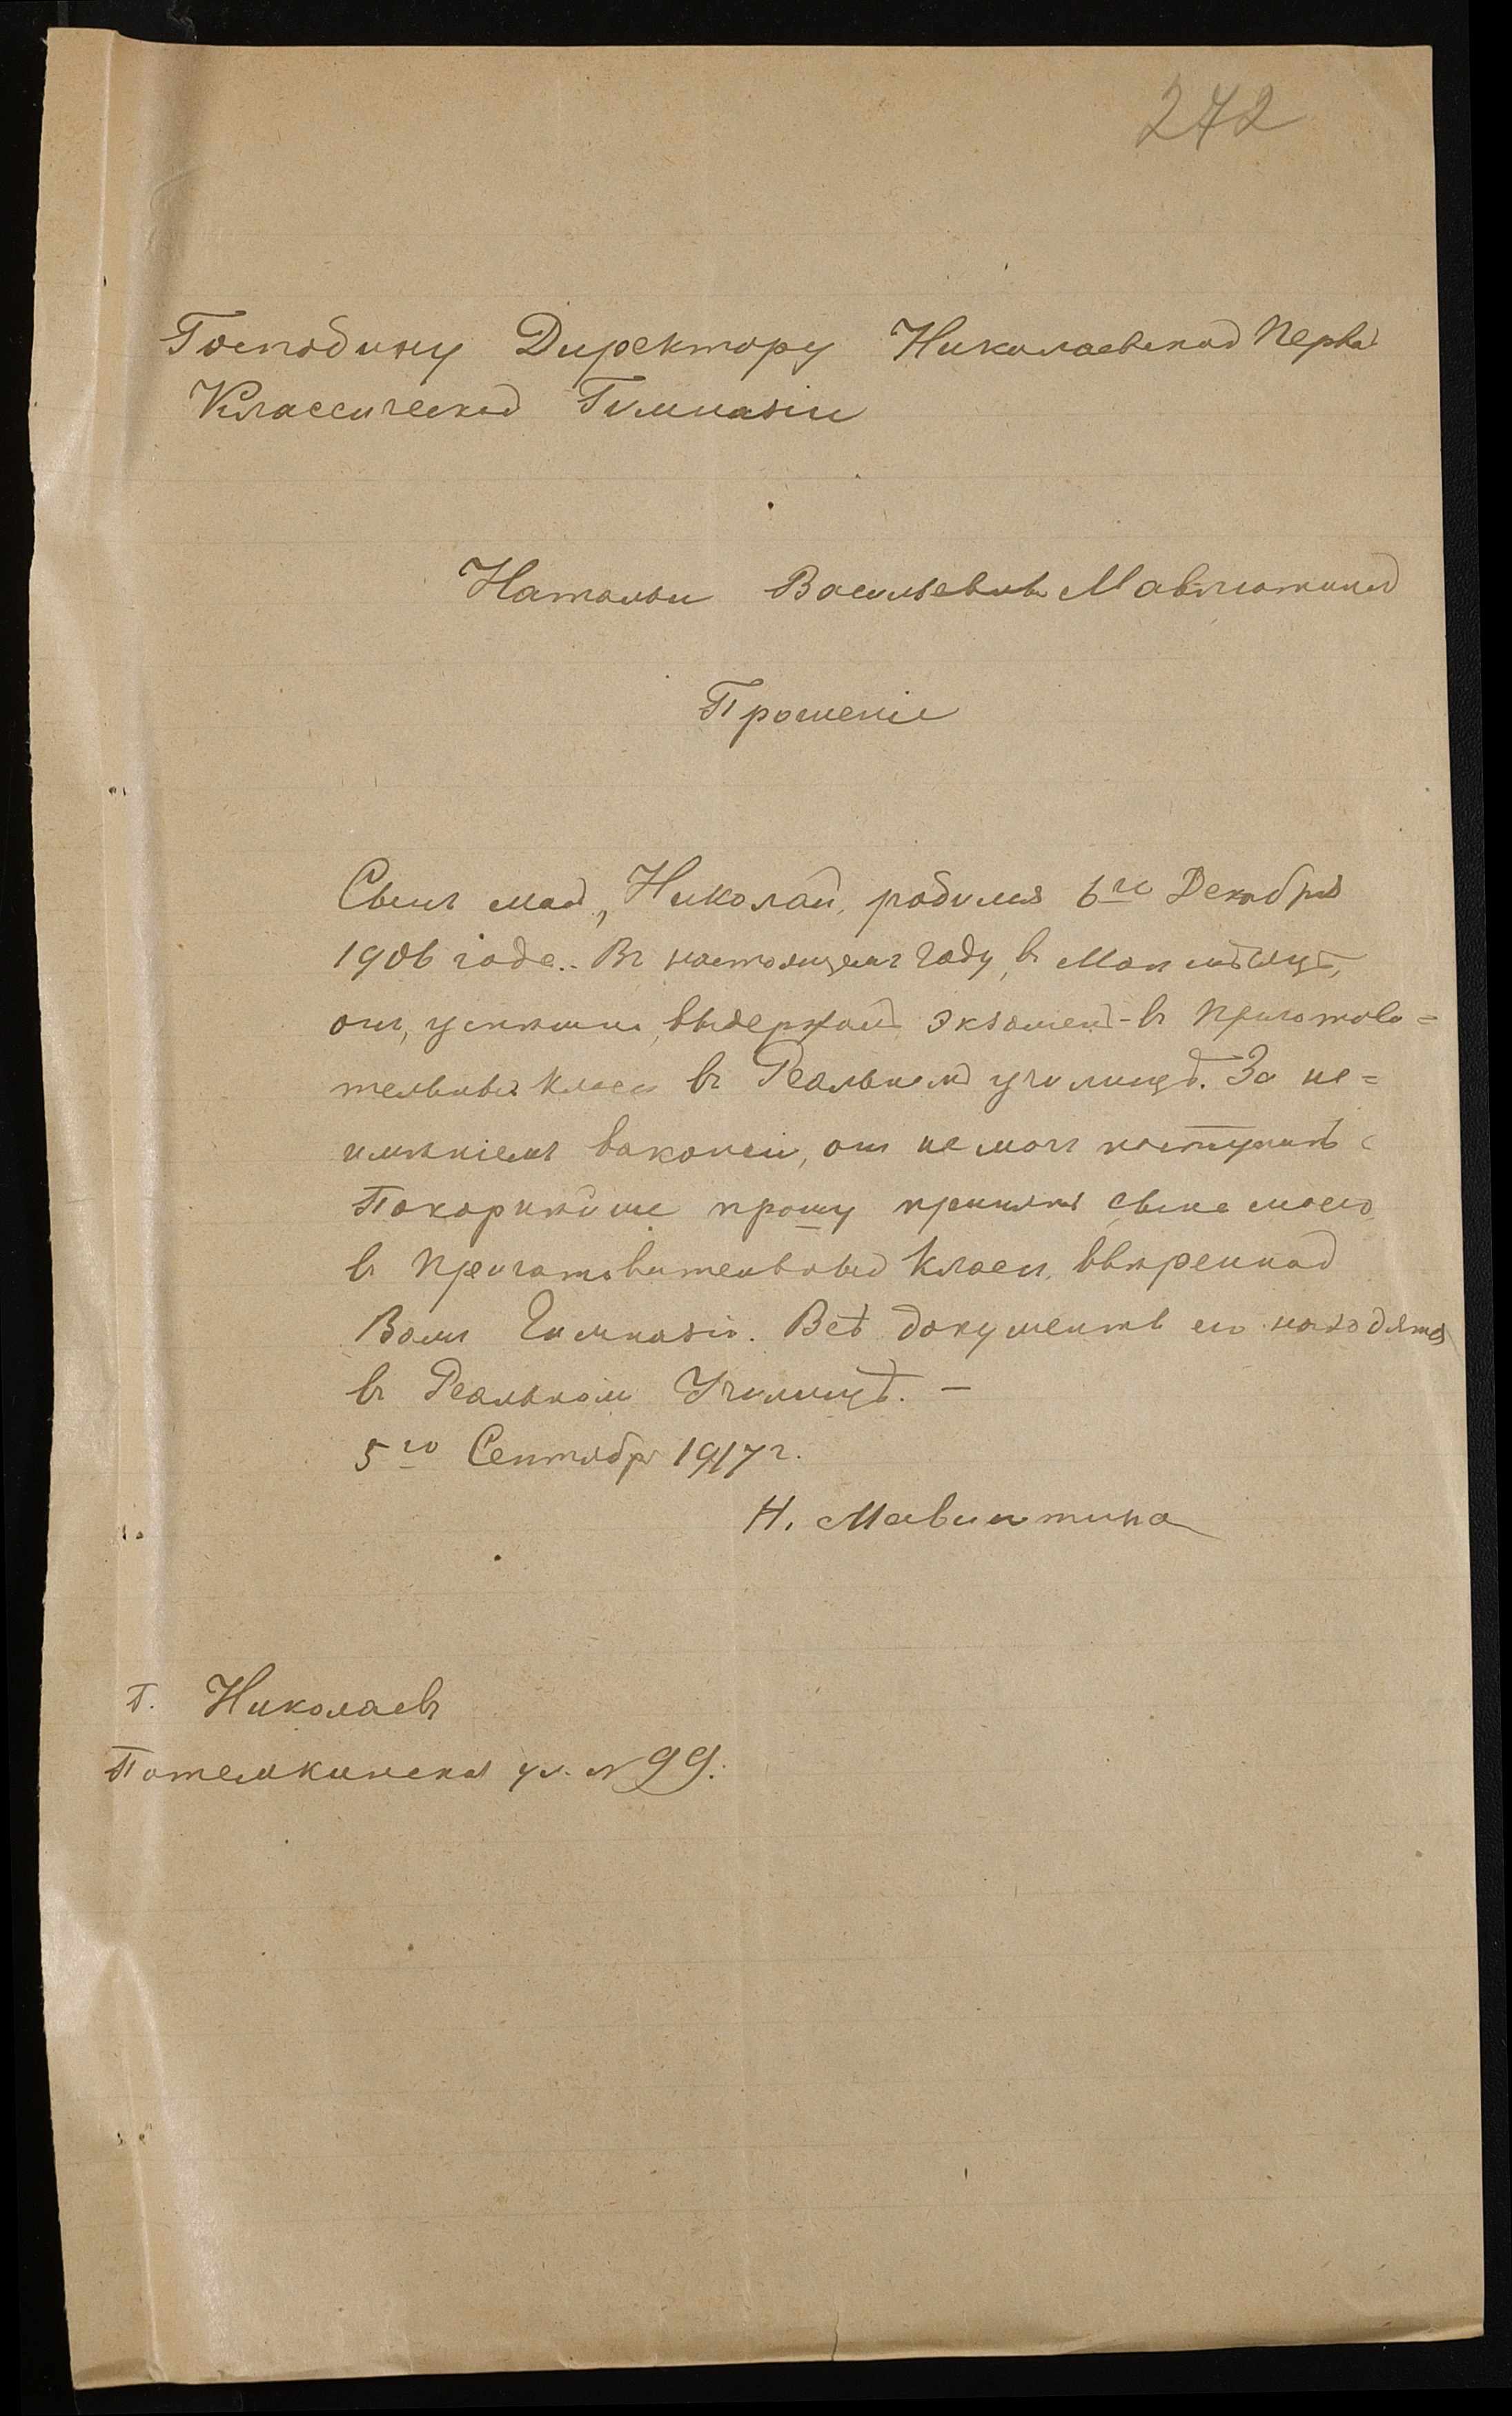 272
Господину Директору Николаевской Первой
Классической Гимназіи
Натальи Васильевны
Прошеніе
Сынъ мой, Николай, родился 6го Декабря
1906 года. Въ настоящемъ году, въ Маѣ мѣсяцѣ,
онъ, успѣшно, выдержалъ экзаменъ въ приготови=
тельный классъ въ Реальномъ училищѣ. За не=
имѣніемъ вакансіи, онъ не могъ поступить.
Покорнѣйше прошу принять сына моего
въ приготовительный классъ, ввѣренной
Вамъ Гимназіи. Всѣ документы его находятся
въ Реальномъ Училищѣ. —
5го Сентября 1917 г.
Н.
г. Николаевъ
Потемкинская ул. № 99.